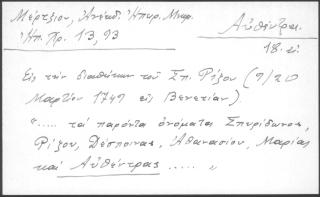 Μέρτζιου, Ἀνέκδ. Ἠπειρ. Μνημ.
Ἠπ. Χρ. 13, 93
Αὐθέντρα.
18. αἰ
Εἰς τὴν διαθήκην τοῦ Σπ. Ρίζου (9/20
Μαρτίου 1749 εἰς Βενετίαν)
"..... τὰ παρόντα ὀνόματα Σπυρίδωνος,
Ρίζου, Δεσποίνας, Ἀθανασίου, Μαρίας
καὶ Αὐθέντρας ..... "